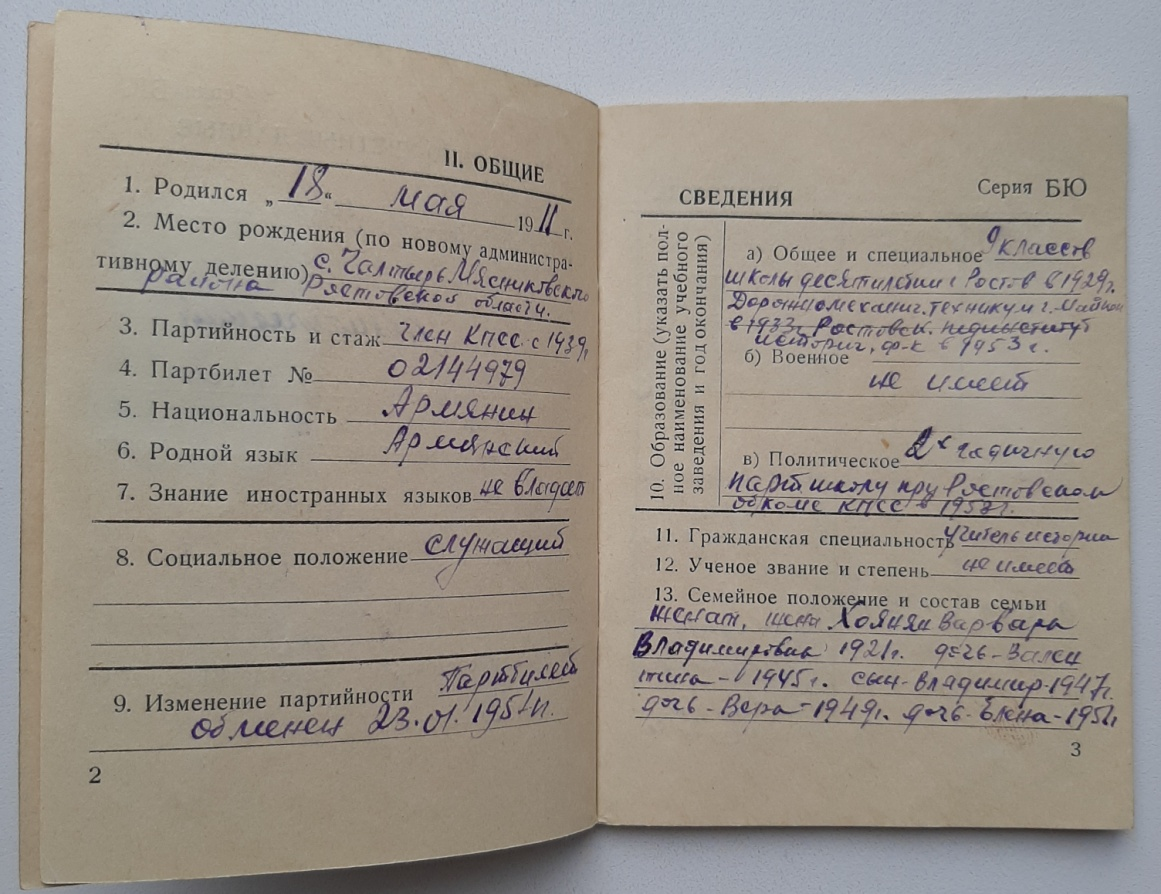 II. ОБЩИЕ
1. Родился „18“ мая 1911 г.
2. Место рождения (по новому администра-
тивному делению) с. Чалтырь Мясниковского
района Ростовской области.
3. Партийность и стаж член КПСС с 1939г
4. Партбилет № 02144979
5. Национальность Армянин
6. Родной язык Армянский
7. Знание иностранных языков не владеет
8. Социальное положение служащий
9. Изменение партийности Партбилет
обменен 23.01.195
2
СВЕДЕНИЯ
Серия БЮ
10. Образование (указать пол-
ное наименование учебного
заведения и год окончания)
а) Общее и специальное 9 классов
школы десятилетки г Ростов в 1929г.
техникум г.
в 1933г. Ростовск. пединститут
историч. ф-к в 1953г.
б) Военное
не имеет
в) Политическое 2х годичную
партшколу при Ростовском
обкоме КПСС в
11. Гражданская специальность Учитель истории
12. Ученое звание и степень не имеет
13. Семейное положение и состав семьи
женат, жена Хоянян Варвара
Владимировна 1921г. дочь-Вален
тина-1945г. сын-Владимир-1947г.
дочь-Вера-1949г. дочь-Елена-195
3